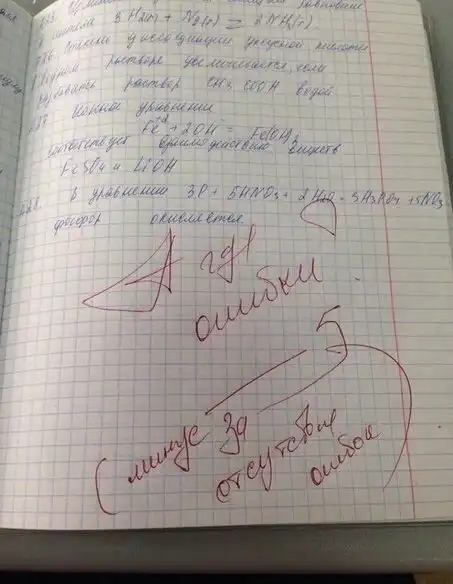 3H₂(г) + N₂(г) = 2NH₃(г)
степень диссоциации уксусной кислоты
растворе увеличивается, если
раствор CH₃COOH водой
Ионное уравнение
Fe²⁺ + 2OH⁻ = Fe(OH)₂
соответствует взаимодействию веществ
FeSO₄ и LiOH
В уравнении 3P + 5HNO₃ + 2H₂O = 3H₃PO₄ + 5NO
фосфор окисляется
А где
ошибки
5
(минус за
отсутствие
ошибок